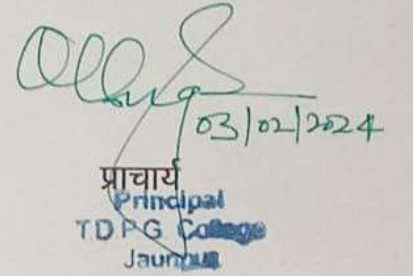 03/02/2024
प्राचार्य
Principal
TDPG College
Jaunpur